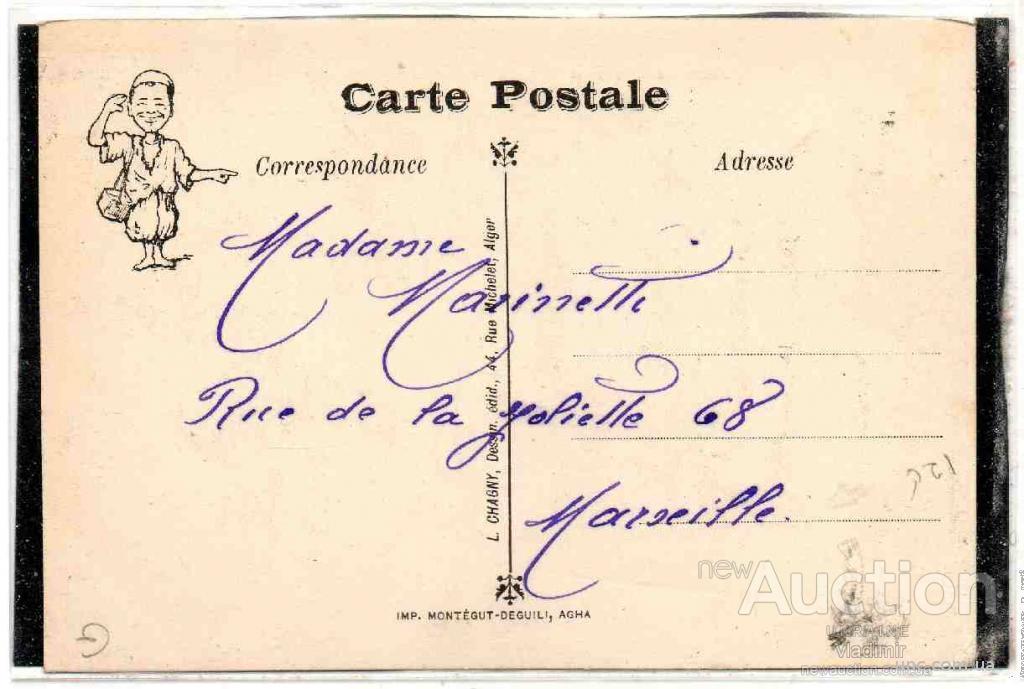 Carte Postale
Correspondance
Adresse
Madame
Marinetti
Rue de la Joliette 68
Marseille.
L. CHAGNY, Dessin. édid., 44, Rue Michelet, Alger
IMP. MONTÉGUT-DEGUILI, AGHA
12G
G
newAuction
UKRAINE
Vladimir
newauction.com.ua